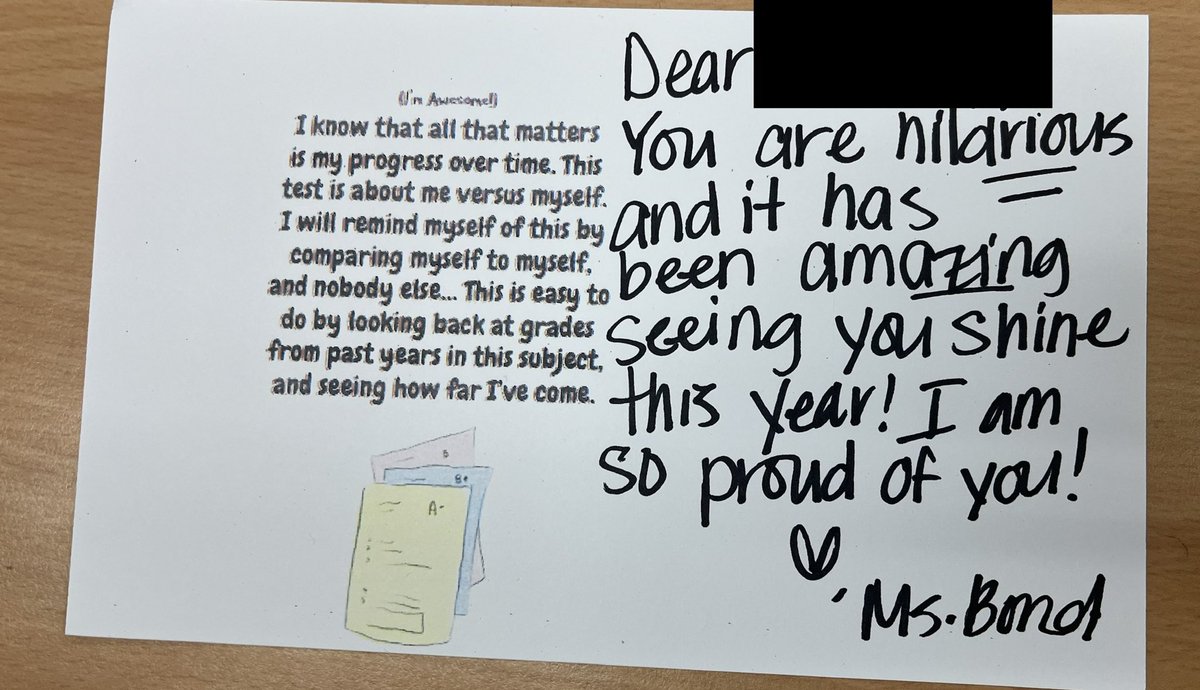 (I'm Awesome!)
I know that all that matters
is my progress over time. This
test is about me versus myself.
I will remind myself of this by
comparing myself to myself,
and nobody else... This is easy to
do by looking back at grades
from past years in this subject,
and seeing how far I've come.
B
B+
A-
Dear
You are hilarious
and it has
been amazing
seeing you shine
this year! I am
so proud of you!
Ms. Bond